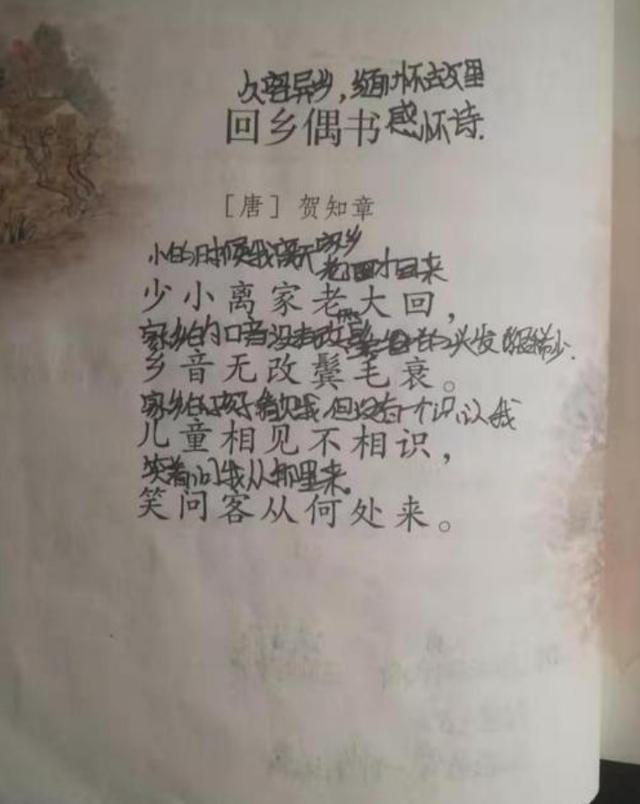 久客异乡，缅怀故里
回乡偶书 感怀诗.
［唐］贺知章
小的时候我离开家乡
老了才回来
少小离家老大回，
家乡的口音没有改 头发 稀少.
乡音无改鬓毛衰。
家乡的孩子看见我但没有一个识认我
儿童相见不相识，
笑着问我从那里来。
笑问客从何处来。